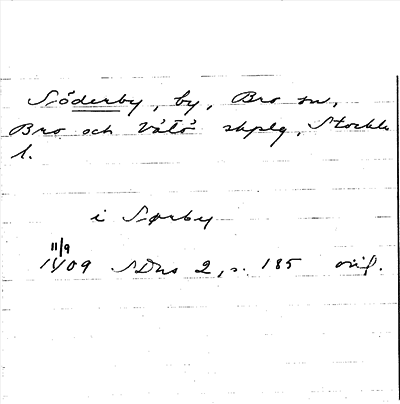 Söderby, by, Bro sn,
Bro och Vätö skplg, Stockh
l.
i Sørby
11/9
1409 SDns 2, s. 185 orig.